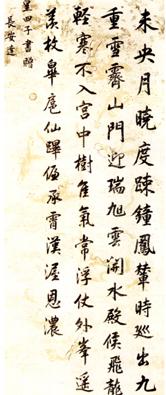 未央月曉度疎鐘鳳輦時巡出九
重雪霽山門迎瑞旭雲開水殿候飛龍
輕寒不入宮中樹佳氣常浮仗外峯遥
羨枚皋扈仙蹕偏承霄漢渥恩濃
四子書時
長安